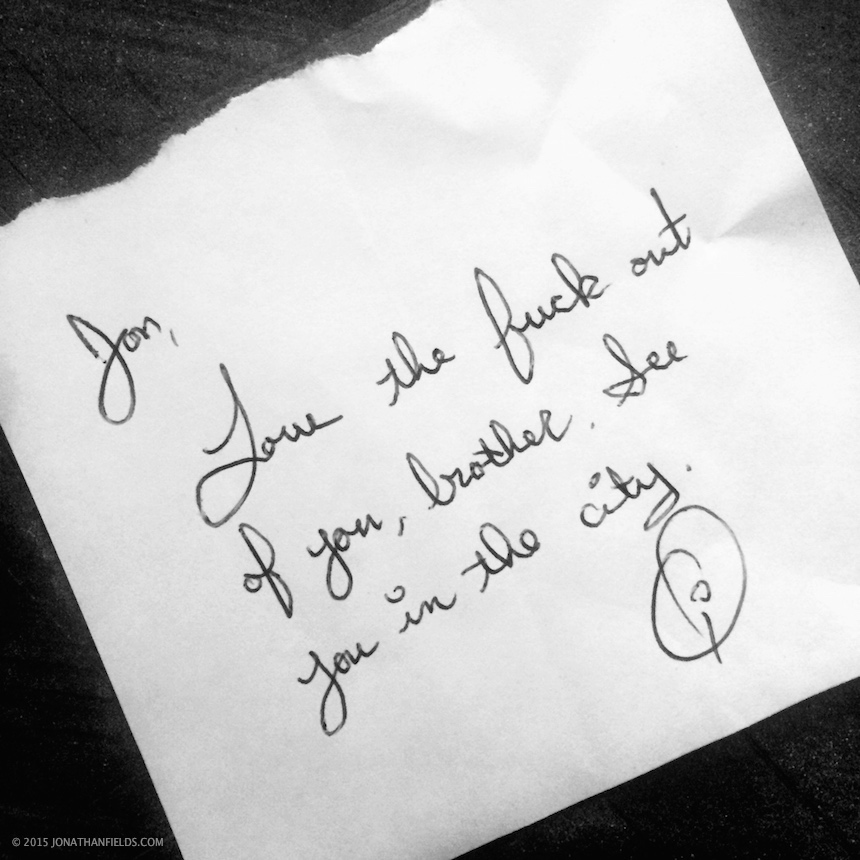 Jon,
Love the fuck out
of you, brother. See
you in the city.
© 2015 JONATHANFIELDS.COM